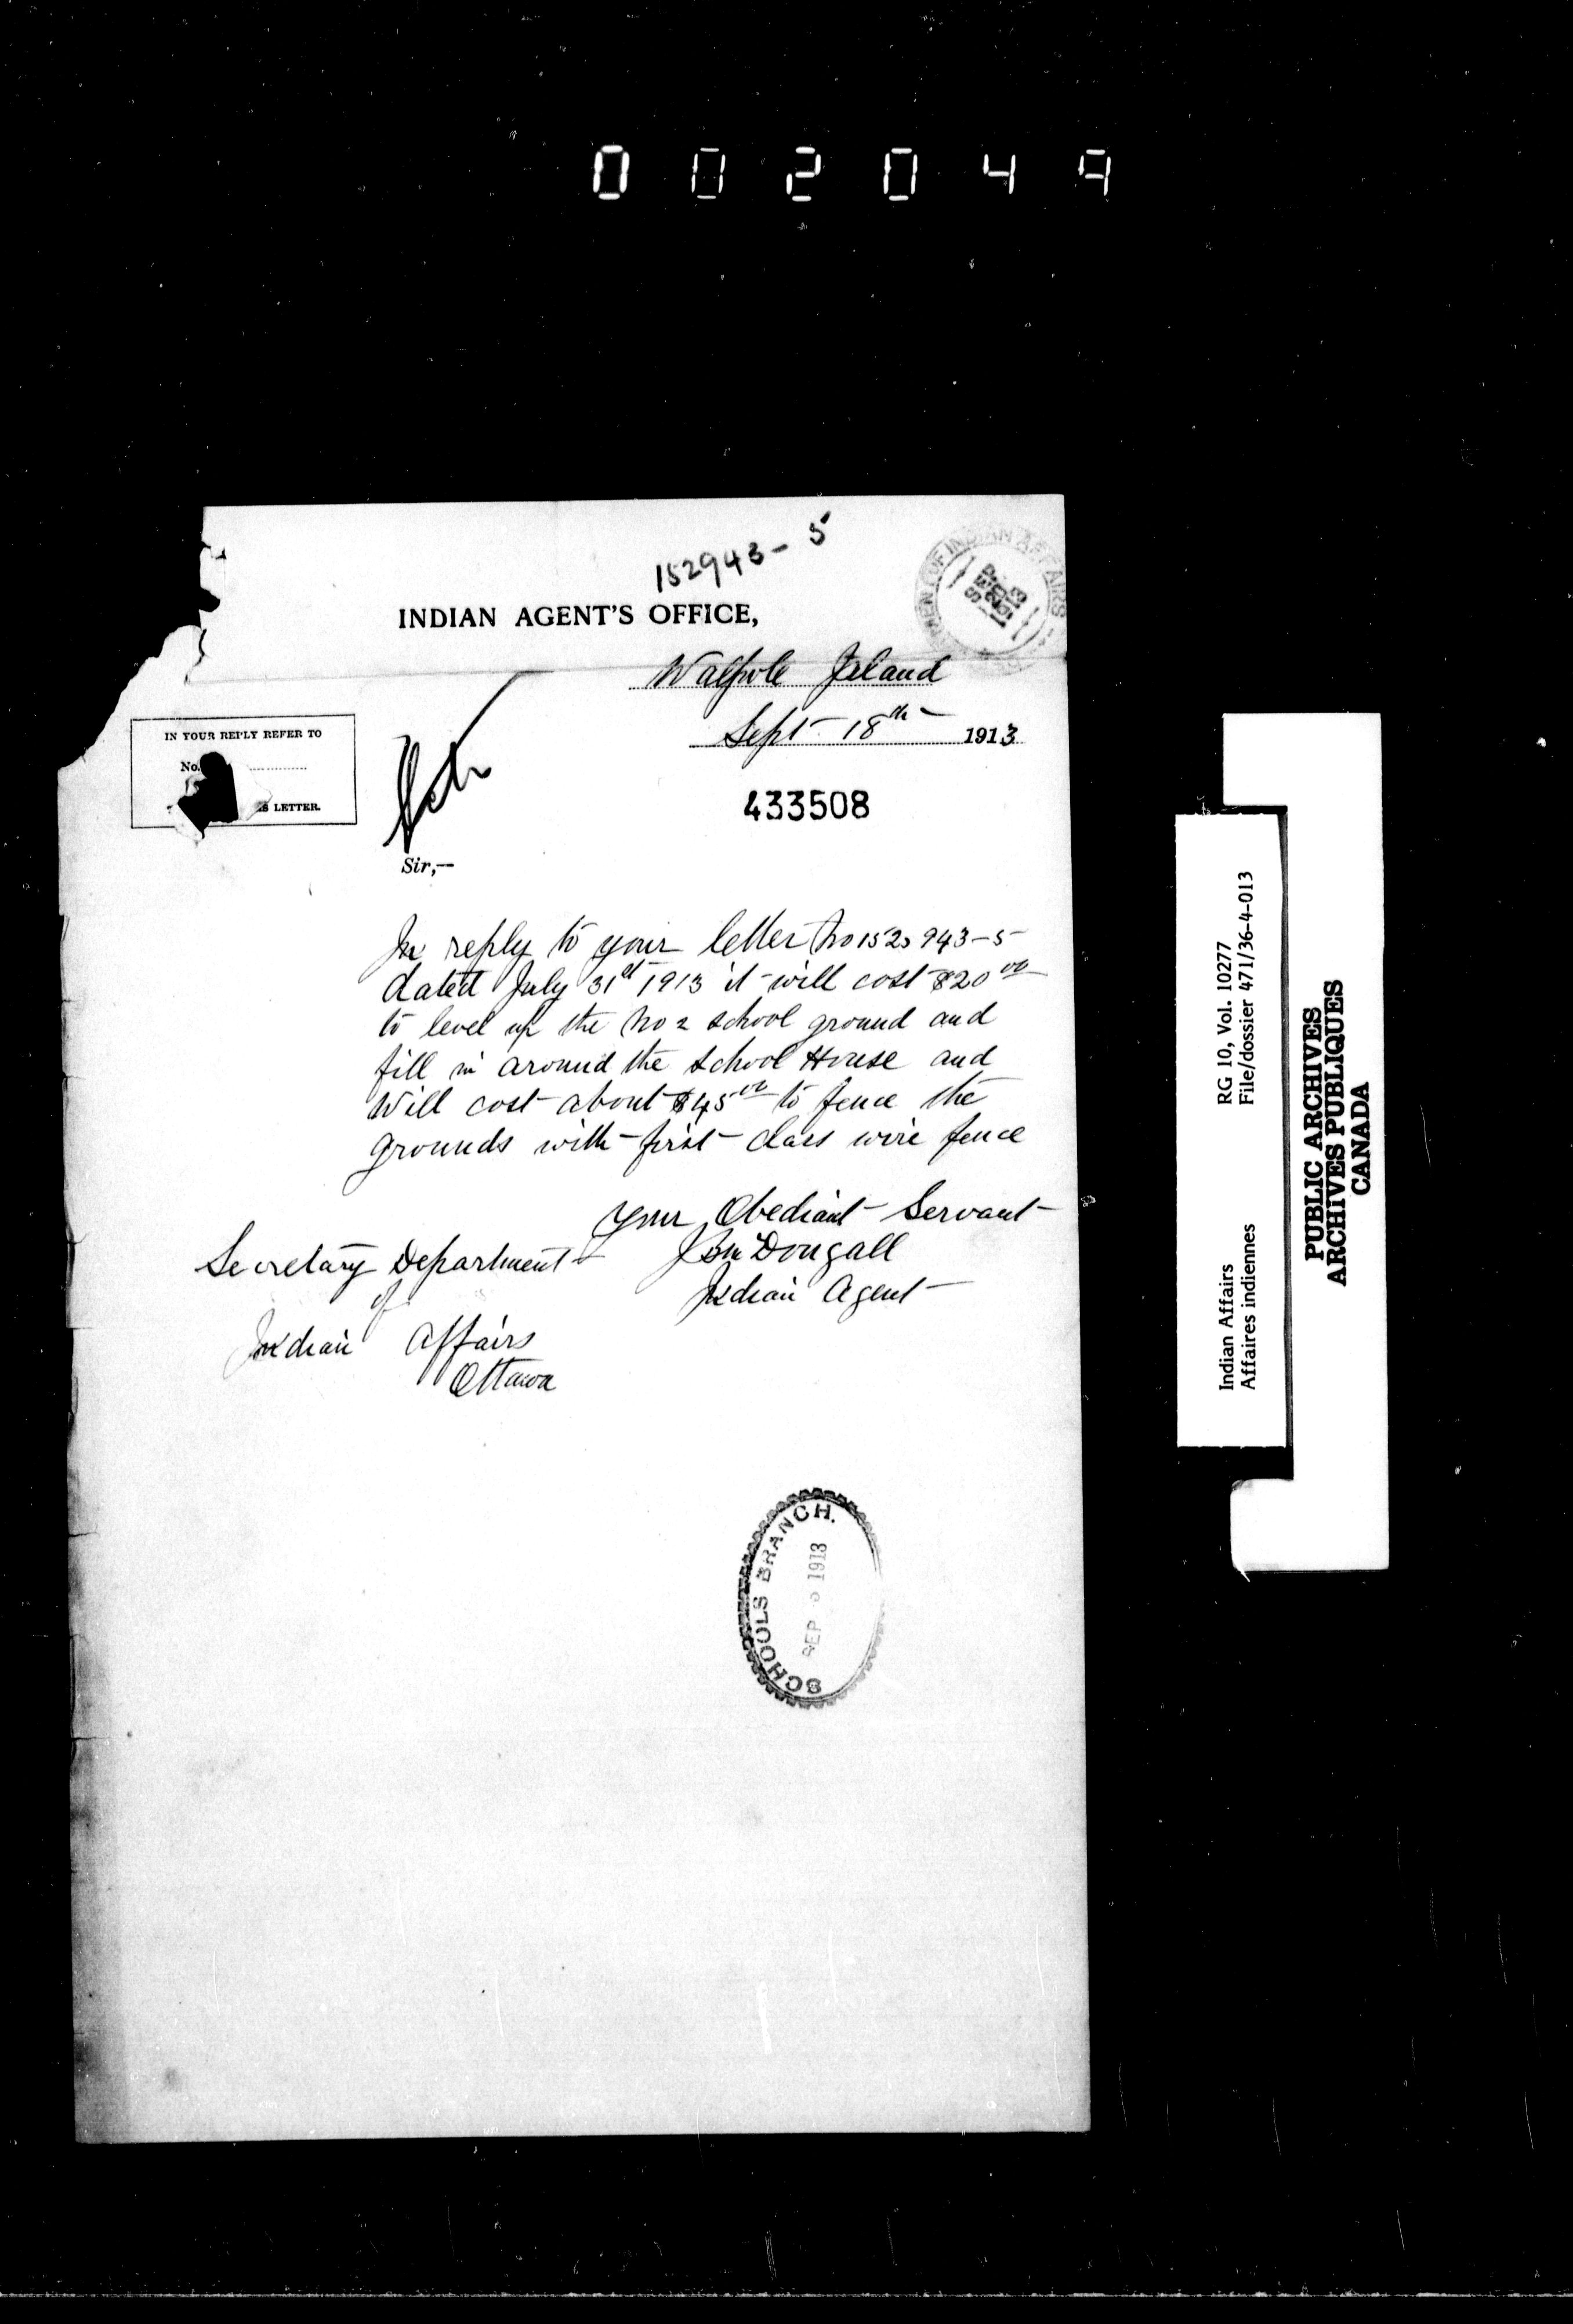 002049
152943-5
INDIAN AGENT'S OFFICE,
DEPARTMENT OF INDIAN AFFAIRS
SEP
1913
Walpole Island
Sept. 18th 1913
IN YOUR REPLY REFER TO
No.
LETTER.
433508
Sir,—
In reply to your letter No 152943-5
dated July 31st 1913 it will cost $20.00
to level up the No 2 school ground and
fill in around the School House and
Will cost about $45.00 to fence the
grounds with first class wire fence
Your Obediant Servant
J B McDougall
Indian Agent
Secretary Department
of
Indian Affairs
Ottawa
SCHOOLS BRANCH.
SEP 1913
RG 10, Vol. 10277
File/dossier 471/36-4-013
Indian Affairs
Affaires indiennes
PUBLIC ARCHIVES
ARCHIVES PUBLIQUES
CANADA